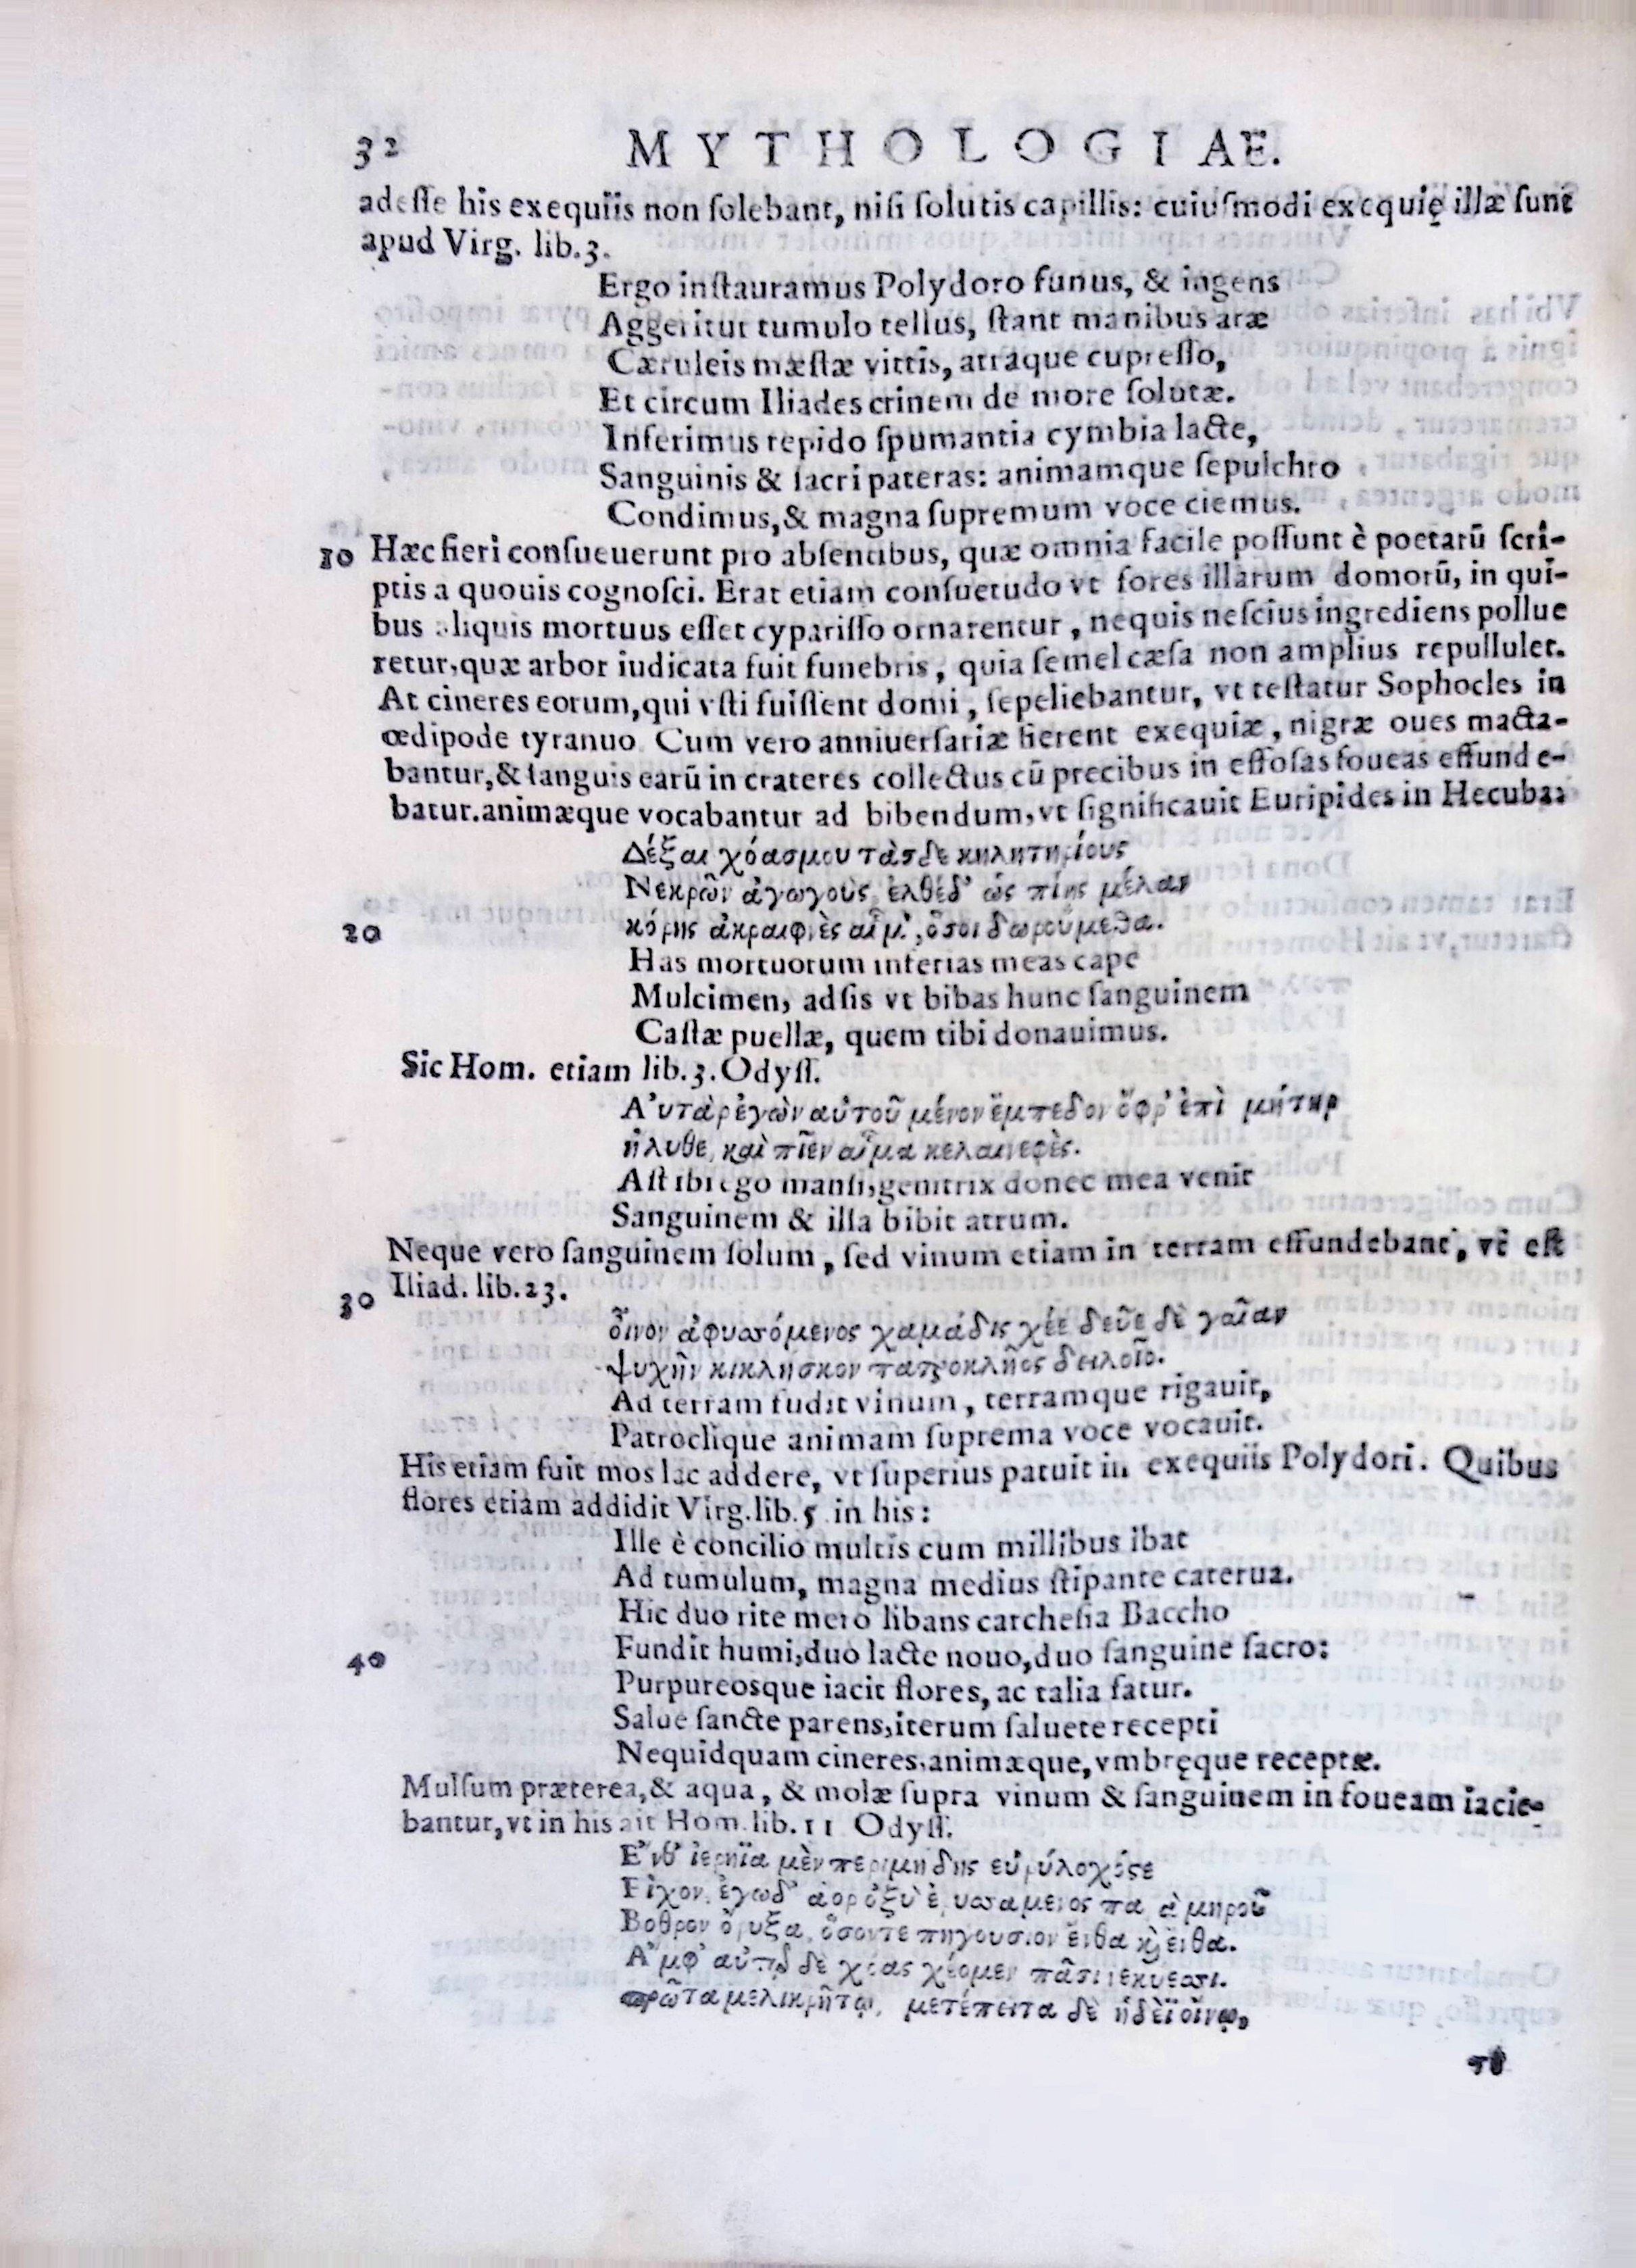 32 MYTHOLOGIAE.
adesse his exequiis non solebant, nisi solutis capillis: cuiusmodi exequię illæ sunt
apud Virg. lib.3.
Ergo instauramus Polydoro funus, & ingens
Aggeritur tumulo tellus, stant manibus aræ
Cæruleis mæstæ vittis, atraque cupresso,
Et circum Iliades crinem de more solutæ.
Inferimus tepido spumantia cymbia lacte,
Sanguinis & sacri pateras: animamque sepulchro
Condimus, & magna supremum voce ciemus.
10 Hæc fieri consueuerunt pro absentibus, quæ omnia facile possunt è poetarū scri-
ptis a quouis cognosci. Erat etiam consuetudo vt fores illarum domorū, in qui-
bus aliquis mortuus esset cyparisso ornarentur, nequis nescius ingrediens pollue
retur, quæ arbor iudicata fuit funebris, quia semel cæsa non amplius repullulet.
At cineres eorum, qui vsti fuissent domi, sepeliebantur, vt testatur Sophocles in
œdipode tyranuo. Cum vero anniuersariæ fierent exequiæ, nigræ oues macta-
bantur, & sanguis earū in crateres collectus cū precibus in effosas foueas effunde-
batur. animæque vocabantur ad bibendum, vt significauit Euripides in Hecuba:
Δέξαι χόασμου τὰσδε κηλητηρίους
Νεκρῶν ἀγωγοὺς, ἐλθέδ' ὡς πίῃς μέλαν
20 κόρης ἀκραιφνὲς αἷμ', ὅσοι δωρούμεθα.
Has mortuorum inferias meas cape
Mulcimen, adsis vt bibas hunc sanguinem
Castæ puellæ, quem tibi donauimus.
Sic Hom. etiam lib.3. Odyss.
Α'υτὰρ ἐγὼν αὐτοῦ μένον ἔμπεδον ὄφρ' ἐπὶ μήτηρ
ἤλυθε, καὶ πῖεν αἷμα κελαινεφὲς.
Ast ibi ego mansi, genitrix donec mea venit
Sanguinem & illa bibit atrum.
Neque vero sanguinem solum, sed vinum etiam in terram effundebant, vt est
30 Iliad. lib.23.
οἶνον ἀφυσσόμενος χαμάδις χέε δεῦε δὲ γαῖαν
ψυχὴν κικλήσκον πατροκλῆος δειλοῖο.
Ad terram fudit vinum, terramque rigauit,
Patroclique animam suprema voce vocauit.
His etiam fuit mos lac addere, vt superius patuit in exequiis Polydori. Quibus
flores etiam addidit Virg. lib.5 in his:
Ille è concilio multis cum millibus ibat
Ad tumulum, magna medius stipante caterua.
Hic duo rite mero libans carchesia Baccho
40 Fundit humi, duo lacte nouo, duo sanguine sacro:
Purpureosque iacit flores, ac talia fatur.
Salue sancte parens, iterum saluete recepti
Nequidquam cineres, animæque, vmbręque receptæ.
Mulsum præterea, & aqua, & molæ supra vinum & sanguinem in foueam iacie-
bantur, vt in his ait Hom. lib. 11 Odyss.
Ε'νθ' ἱερηΐα μὲν περιμήδης εὐρύλοχόςτε
Εἶχον, ἐγωδ' ἀορ ὀξὺ ἐρυσσαμενος παρὰ μηροῦ
Βοθρον ὄρυξα, ὅσοντε πηγουσιον ἔνθα καὶ ἔνθα.
Α'μφ' αὐτῷ δὲ χόας χέομεν πᾶσι νεκύεσσι.
πρῶτα μελικρήτῳ, μετέπειτα δὲ ἡδέϊ οἴνῳ,